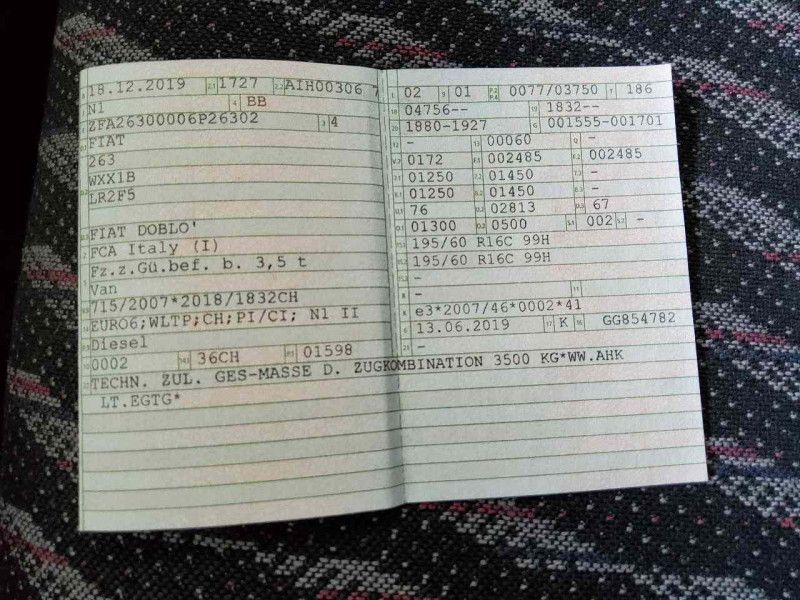 18.12.2019 1727 AIH00306 7
N1 BB
ZFA26300006P26302 4
FIAT
263
WXX1B
LR2F5
FIAT DOBLO'
FCA Italy (I)
Fz.z.Gü.bef. b. 3,5 t
Van
715/2007*2018/1832CH
EURO6;WLTP;CH;PI/CI; N1 II
Diesel
0002 36CH 01598
TECHN. ZUL. GES-MASSE D. ZUGKOMBINATION 3500 KG*WW.AHK
LT.EGTG*
02 9 01 P.2 P.4 0077/03750 T 186
18 04756-- 19 1832--
20 1880-1927 G 001555-001701
12 - 13 00060 Q -
V.7 0172 F.1 002485 F.2 002485
7.1 01250 7.2 01450 7.3 -
8.1 01250 8.2 01450 8.3 -
U.1 76 U.2 02813 U.3 67
O.1 01300 O.2 0500 S.1 002 S.2 -
15.1 195/60 R16C 99H
15.2 195/60 R16C 99H
-
R - 11
K e3*2007/46*0002*41
6 13.06.2019 17 K 16 GG854782
21 -